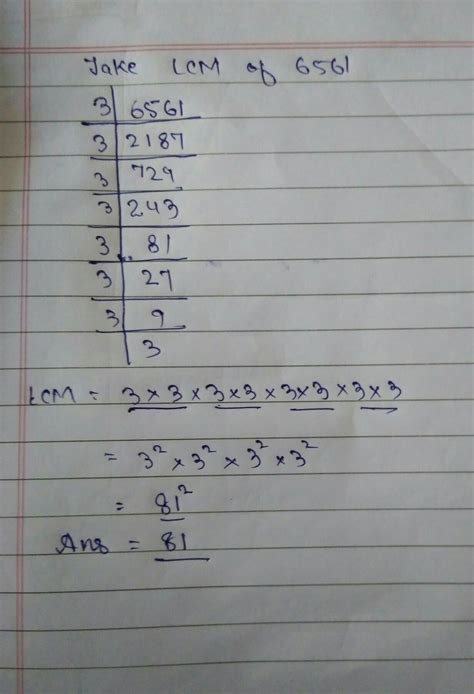 Take LCM of 6561
3 | 6561
3 | 2187
3 | 729
3 | 243
3 | 81
3 | 27
3 | 9
| 3
LCM = 3 × 3 × 3 × 3 × 3 × 3 × 3 × 3
= 3² × 3² × 3² × 3²
= 81²
Ans = 81